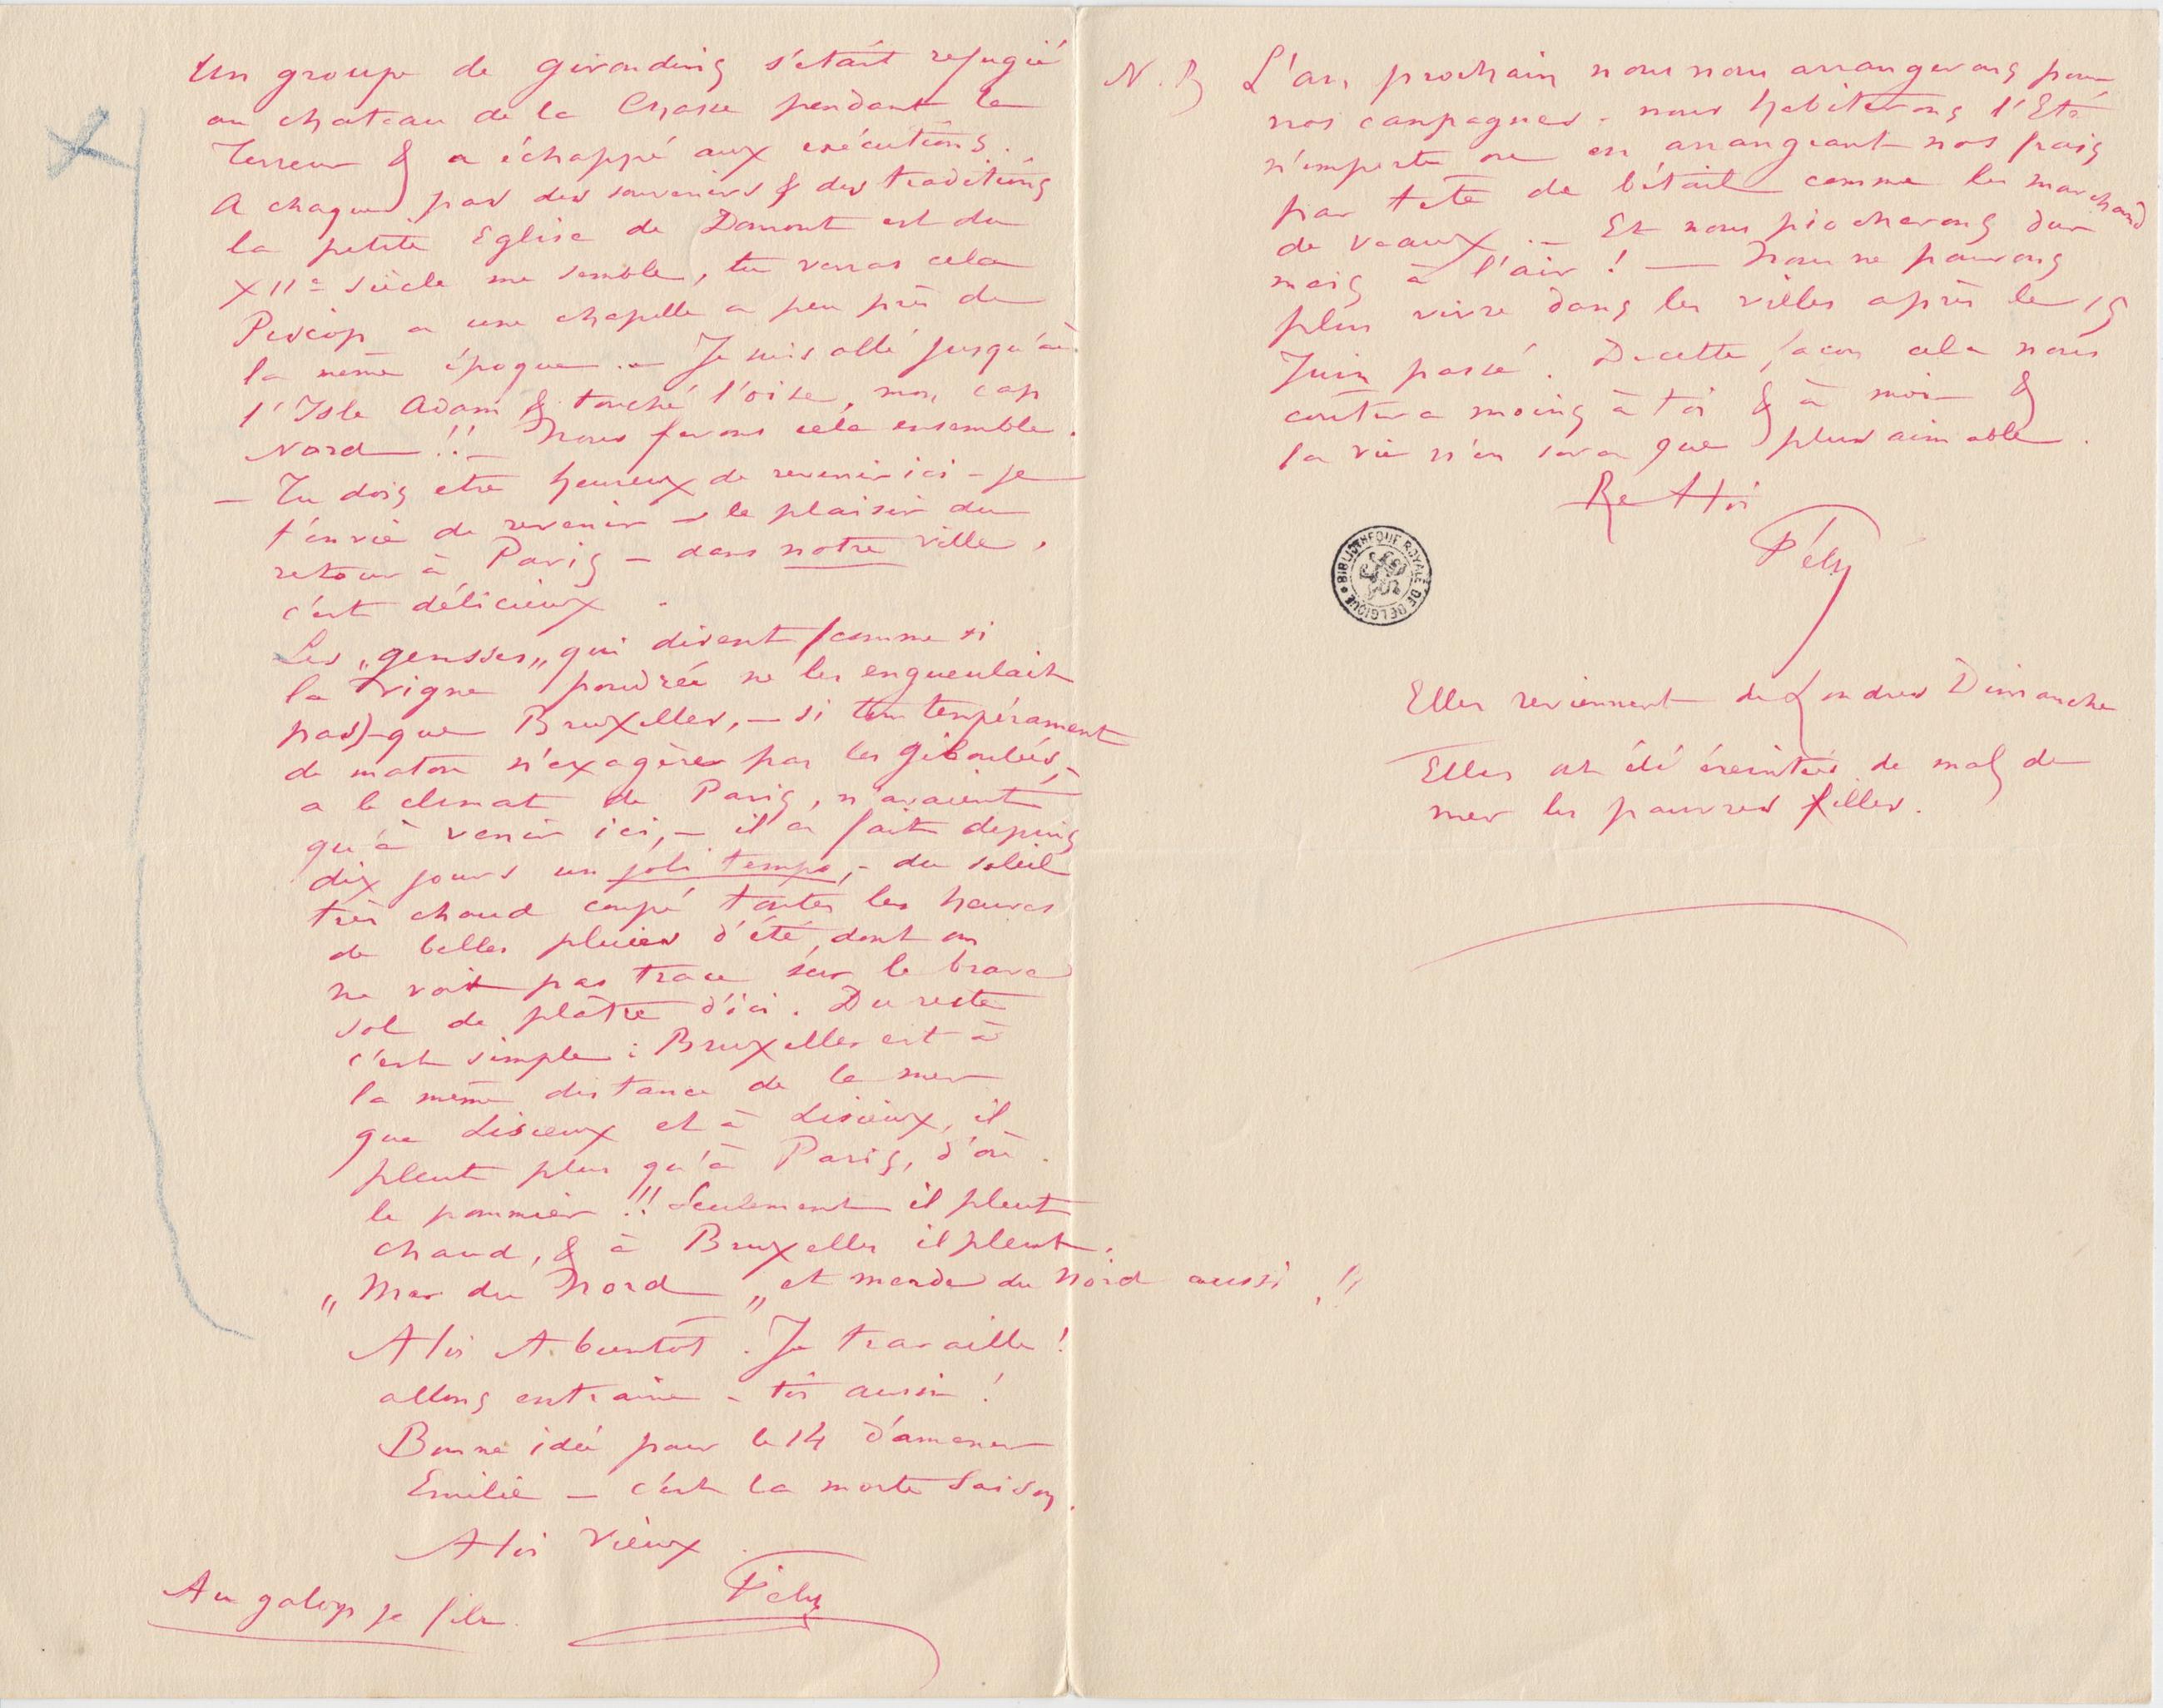 Un groupe de girondins s'etait refugié
au chateau de la Chasse pendant la
Terreur & a échappé aux exécutions.
A chaque pas des souvenirs & des traditions
la petite Eglise de Domont est du
XIIe siècle me semble, tu verras cela
Piscop a une chapelle a peu près de
la même époque. – Je suis allé jusqu'à
l'Isle Adam & touché l'oise, mon cap
Nord !! – Nous ferons cela ensemble.
– Tu dois etre heureux de revenir ici – je
t'envie de revenir – le plaisir du
retour à Paris – dans notre ville,
c'est délicieux.
Les „gensses„ qui disent (comme si
la vigne poudrée ne les engueulait
pas) – que Bruxelles, – si ton tempérament
de maton n'exagère pas les giboulées, –
a le climat de Paris, n'avaient
qu'à venir ici, – il a fait depuis
dix jours un joli temps, – du soleil
très chaud coupé toutes les heures
de belles pluies d'été, dont on
ne voit pas trace sur le brave
sol de plâtre d'ici. Du reste
c'est simple : Bruxelles est à
la même distance de la mer
que Lisieux et à Lisieux, il
pleut plus qu'à Paris, d'où
le pommier !! Seulement il pleut
chaud, & à Bruxelles il pleut.
„Mer du Nord„ et merde du Nord aussi !!
A toi A bientôt. Je travaille !
allons entraine-toi aussi !
Bonne idée pour le 14 d'amener
Emilie – c'est la morte saison.
A toi vieux
Fély
Au galop je file.
N.B L'an prochain nous nous arrangerons pour
nos campagnes. nous habiterons l'Eté
n'importe ou en arrangeant nos frais
par tete de bétail comme les marchand
de veaux. – Et nous piocherons dur
mais à l'air ! – Nous ne pouvons
plus vivre dans les villes après le 15
Juin passé. De cette façon cela nous
coutera moins à toi & à moi &
la vie n'en sera que plus aimable.
Re A toi
Fély
BIBLIOTHEQUE ROYALE DE BELGIQUE
Elles reviennent de Londres Dimanche
Elles ont été éreintées de mal de
mer les pauvres filles.